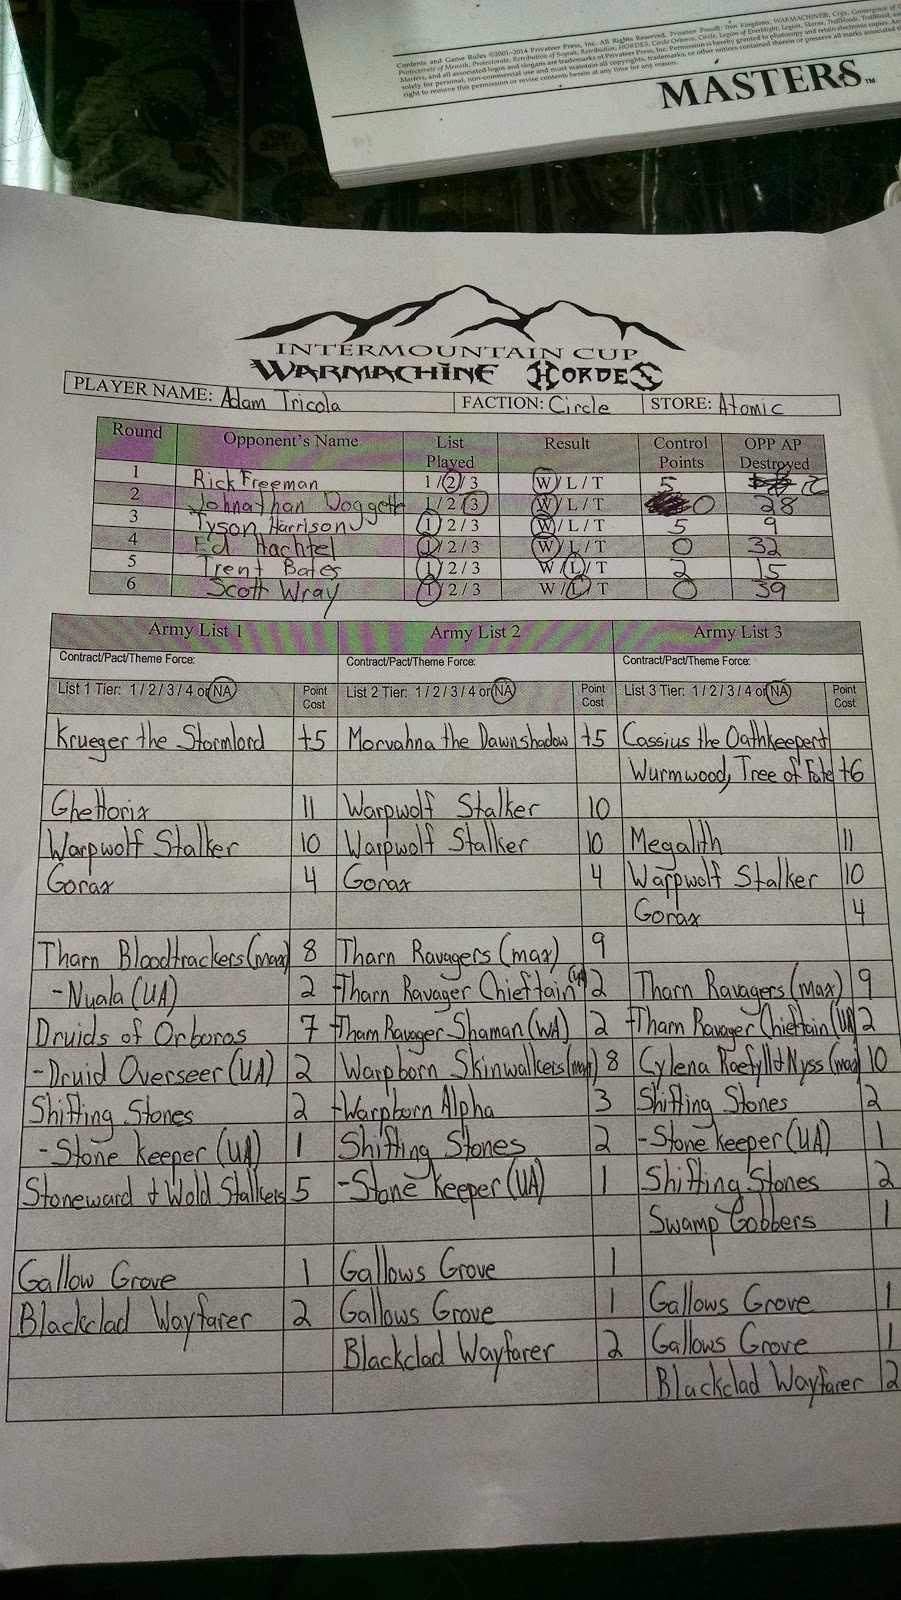 Contents and Game Rules ©2001-2014 Privateer Press, Inc. All Rights Reserved. Privateer Press®, Iron Kingdoms, WARMACHINE®, Cryx, Convergence of
Protectorate of Menoth, Protectorate, Retribution of Scyrah, Retribution, HORDES, Circle Orboros, Circle, Legion of Everblight, Legion, Skorne, Trollbloods, Trollblood,
Masters, and all associated logos and slogans are trademarks of Privateer Press, Inc. Permission is hereby granted to photocopy and retain electronic copies.
solely for personal, non-commercial use and must maintain all copyrights, trademarks, or other notices contained therein or preserve all marks associated
right to remove this permission or revise contents herein at any time for any reason.
MASTERS™
INTERMOUNTAIN CUP
WARMACHINE HORDES
PLAYER NAME: Adam Tricola FACTION: Circle STORE: Atomic
Round Opponent's Name List Played Result Control Points OPP AP Destroyed
1 Rick Freeman 1/2/3 W/L/T 5
2 Johnathan Doggett 1/2/3 W/L/T 0 28
3 Tyson Harrison 1/2/3 W/L/T 5 9
4 Ed Hachtel 1/2/3 W/L/T 0 32
5 Trent Bates 1/2/3 W/L/T 2 15
6 Scott Wray 1/2/3 W/L/T 0 39
Army List 1 Army List 2 Army List 3
Contract/Pact/Theme Force: Contract/Pact/Theme Force: Contract/Pact/Theme Force:
List 1 Tier: 1/2/3/4 or NA Point Cost List 2 Tier: 1/2/3/4 or NA Point Cost List 3 Tier: 1/2/3/4 or NA Point Cost
Krueger the Stormlord +5 Morvahna the Dawnshadow +5 Cassius the Oathkeeper+
Wurmwood, Tree of Fate +6
Ghettorix 11 Warpwolf Stalker 10
Warpwolf Stalker 10 Warpwolf Stalker 10 Megalith 11
Gorax 4 Gorax 4 Warpwolf Stalker 10
Gorax 4
Tharn Bloodtrackers (max) 8 Tharn Ravagers (max) 9
-Nuala (UA) 2 -Tharn Ravager Chieftain (UA) 2 Tharn Ravagers (max) 9
Druids of Orboros 7 -Tharn Ravager Shaman (WA) 2 -Tharn Ravager Chieftain (UA) 2
-Druid Overseer (UA) 2 Warpborn Skinwalkers (max) 8 Cylena Raefyll & Nyss (max) 10
Shifting Stones 2 -Warpborn Alpha 3 Shifting Stones 2
-Stone Keeper (UA) 1 Shifting Stones 2 -Stone keeper (UA) 1
Stoneward & Wold Stalkers 5 -Stone Keeper (UA) 1 Shifting Stones 2
Swamp Gobbers 1
Gallow Grove 1 Gallows Grove 1
Blackclad Wayfarer 2 Gallows Grove 1 Gallows Grove 1
Blackclad Wayfarer 2 Gallows Grove 1
Blackclad Wayfarer 2